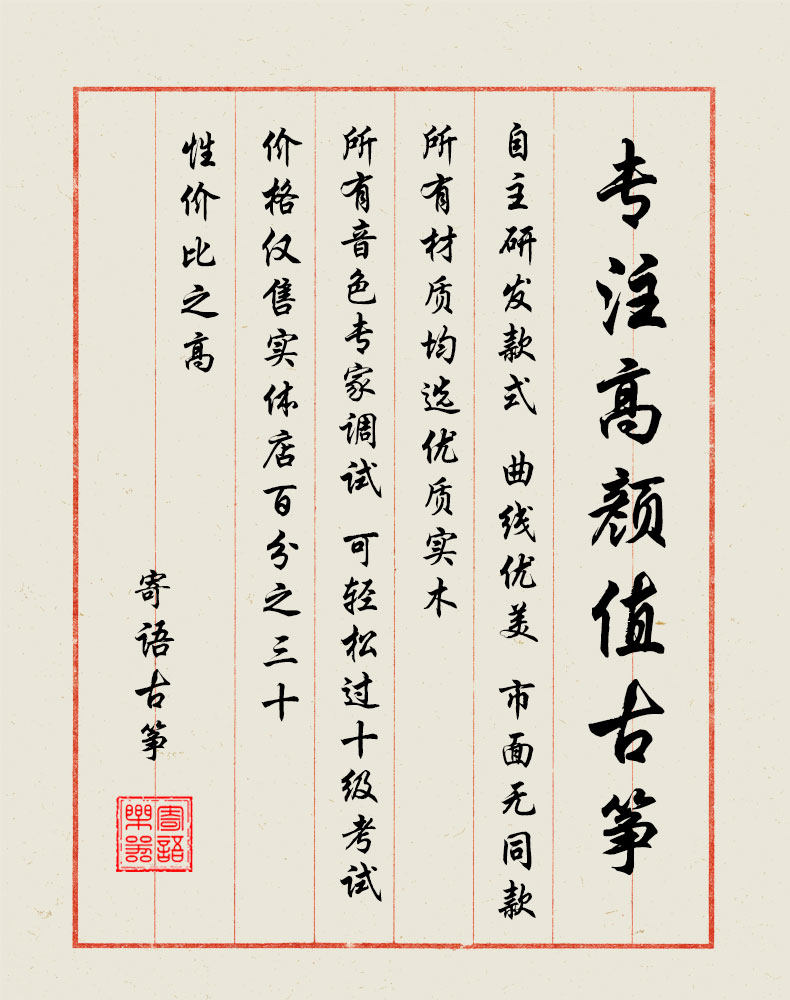 专注高颜值古筝
自主研发款式 曲线优美 市面无同款
所有材质均选优质实木
所有音色专家调试 可轻松过十级考试
价格仅售实体店百分之三十
性价比之高
寄语古筝
寄語樂器